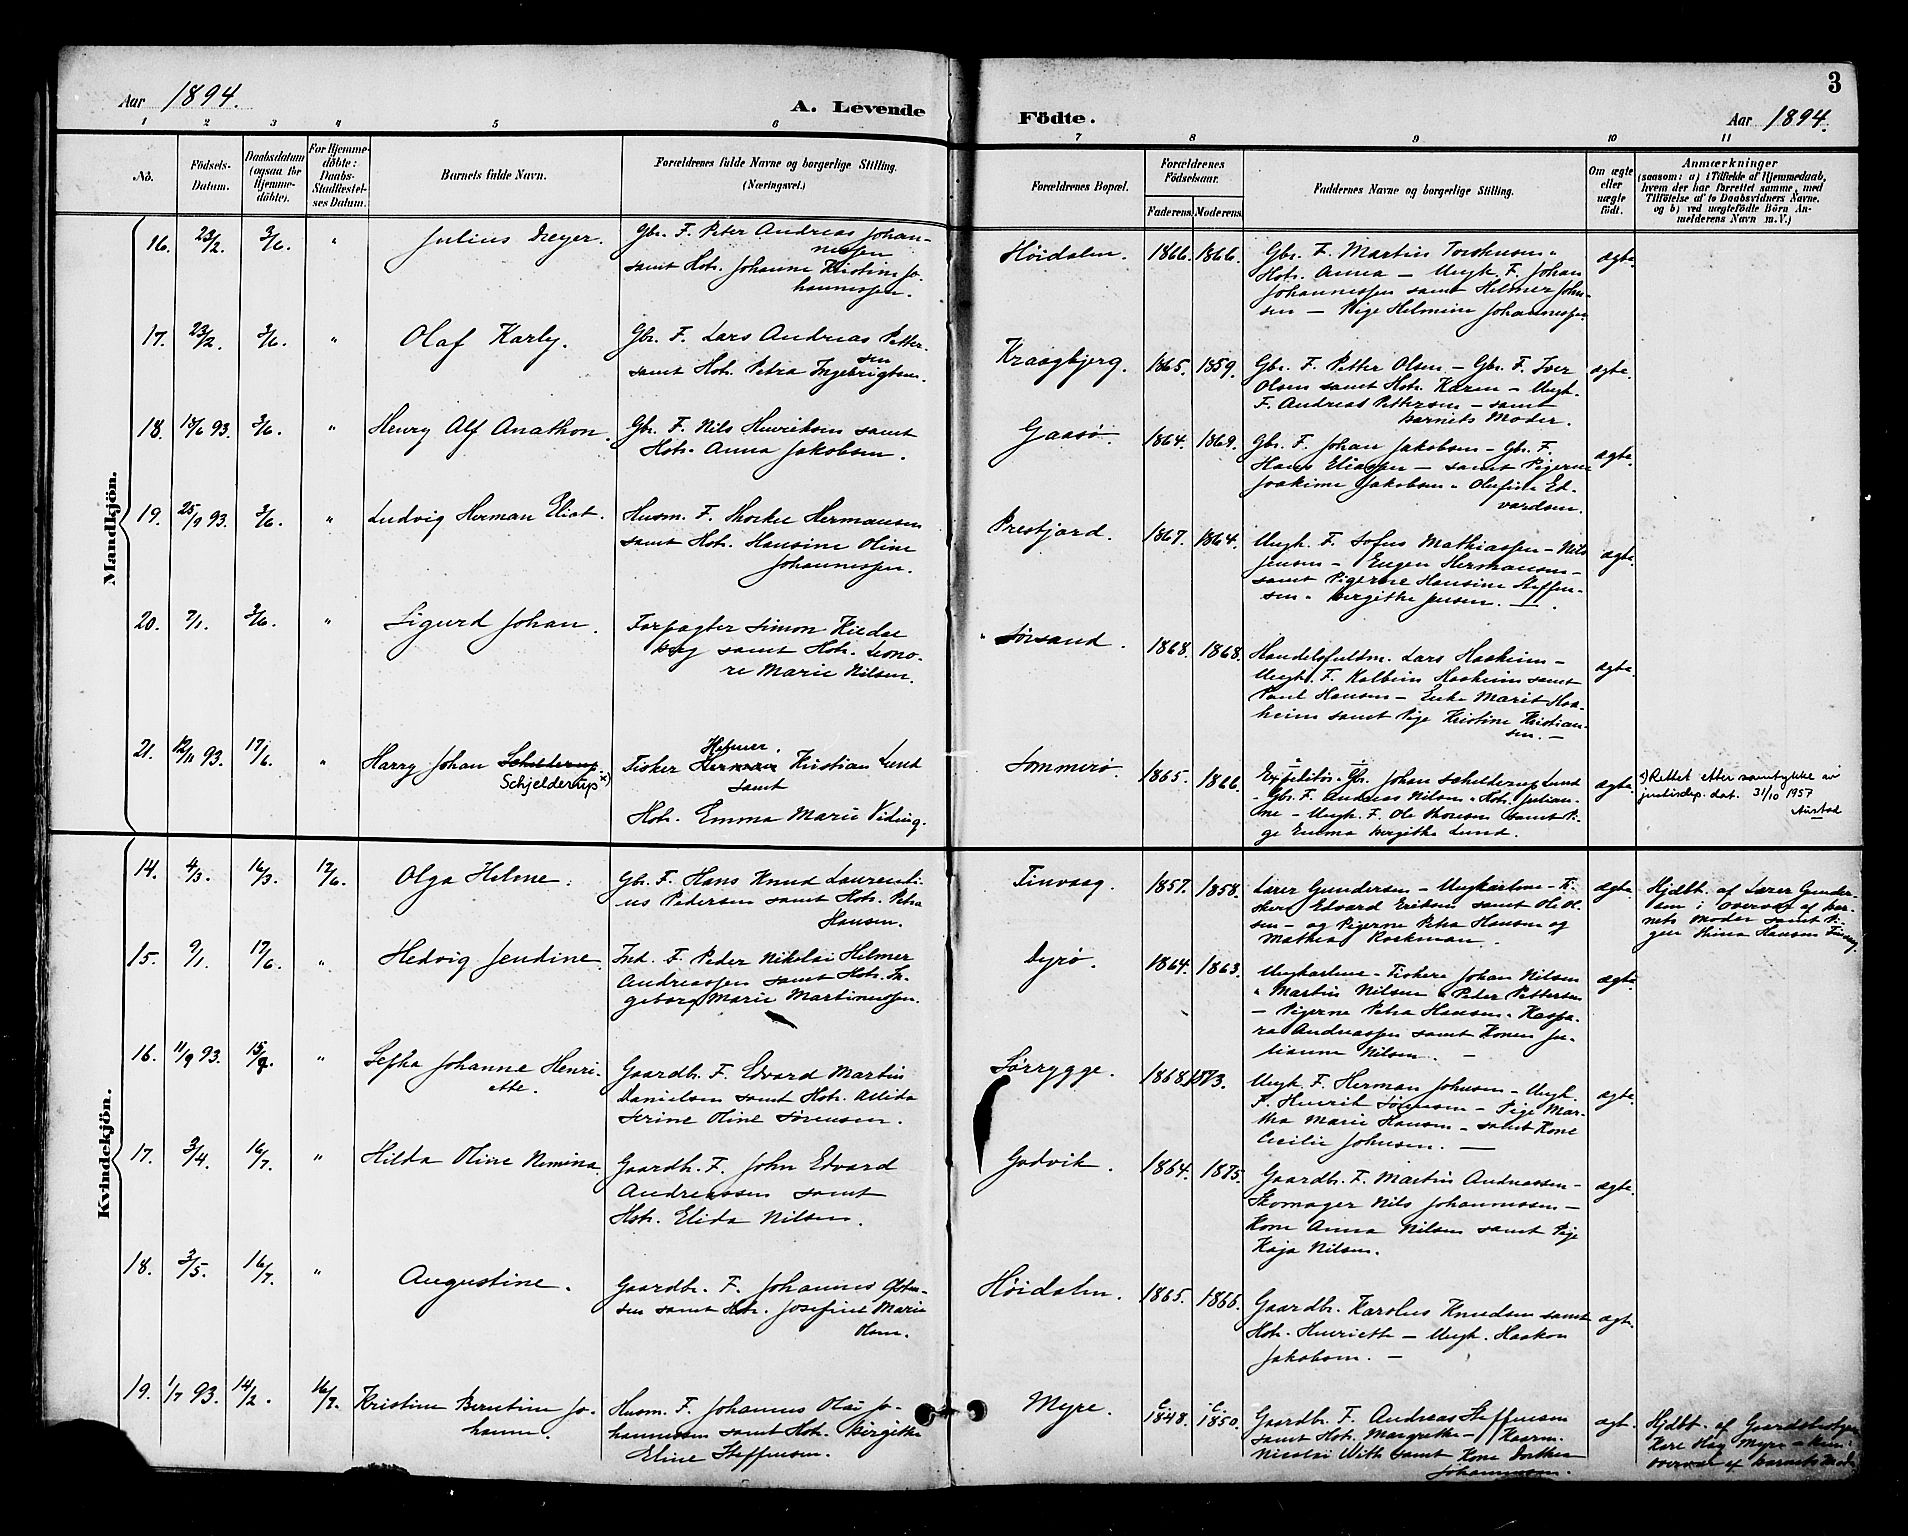 Aar 1894.
A. Levende
Födte.
Aar 1894.
3
1 2 3 4 5 6 7 8 9 10 11
No.
Födsels-
Datum.
Daabsdatum
(ogsaa for
Hjemme-
döbte).
For Hjemme-
döbte:
Daabs-
Stadfæstel-
ses Datum.
Barnets fulde Navn.
Forældrenes fulde Navne og borgerlige Stilling.
(Næringsvei.)
Forældrenes Bopæl.
Forældrenes
Födselsaar.
Faderens. Moderens.
Faddernes Navne og borgerlige Stilling.
Om ægte
eller
uægte
födt.
Anmærkninger
(saasom: a) i Tilfælde af Hjemmedaab,
hvem der har forrettet samme, med
Tilföielse af to Daabsvidners Navne.
og b) ved uægtefödte Börn An-
melderens Navn m.V.)
Mandkjön.
16. 23/2. 3/6. " Julius Dreyer.
Gbr. F. Peter Andreas Johan-
nessen
samt Hstr. Johanne Kristine Jo-
hannessen.
Höidalen. 1866. 1866.
Gbr. F. Martin
Hstr. Anna – Ungk. F. Johan
Johannessen samt Helmer John-
sen – Pige Helmine Johannessen
ægte.
17. 23/2. 3/6. " Olaf Karly.
Gbr. F. Lars Andreas Petter-
sen
samt Hstr. Petra Ingebrigtsen.
Kraagbjerg. 1865. 1859.
Gbr. F. Petter Olsen – Gbr. F. Iver
Olsen samt Hstr. Karen – Ungk.
F. Andreas Pettersen – samt
barnets Moder.
ægte.
18. 18/6 93. 3/6. " Henry Alf Anathon.
Gbr. F. Nils Henriksen samt
Hstr. Anna Jakobsen.
Gaasö. 1864. 1869.
Gbr. F. Johan Jakobsen – Gbr. F.
Hans Eliassen – samt Pigerne
Joakime Jakobsen " Olufine Ed-
vardsen.
ægte.
19. 25/9 93. 3/6. " Ludvig Herman Eliot.
Husm. F. Hermansen
samt Hstr. Hansine Oline
Johannessen.
Prestfjord. 1867. 1864.
Ungk. F. Sofus Mathiassen – Nils
Jensen – Eugen Hermansen –
samt Pigerne Hansine Steffen-
sen " Bergithe Jensen. –
ægte
20. 7/1. 3/6. " Sigurd Johan.
Forpagter Simon Kildal
samt Hstr. Leono-
re Marie Nilsen.
" Sörsand. 1868. 1868.
Handelsfuldm. Lars Haaheim –
Ungk. F. Kolbein Haaheim samt
Paul Hansen – Enke Marit Haa-
heim samt Pige Kristine Kristian-
sen. –
ægte.
21. 12/11 93. 17/6. " Harry Johan Schilderup
Schjelderup x)
Helmer.
Fisker Herman Kristian Lund
samt
Hstr. Emma Marie Viding.
Sommerö. 1865. 1866.
Expeditör. Gbr. Johan Schilderup Lund
– Gbr. F. Andreas Nilsen " Hstr. Julian-
ne – Ungk. F. Ole samt Pi-
ge Emma Bergithe Lund.
ægte.
x) Rettet etter samtykke av
justisdep. dat. 31/10 1957
Aurstad
Kvindekjön.
14. 4/3. 16/3. 17/6. Olga Helene.
Gbr. F. Hans Knud Laurenti-
us Pedersen samt Hstr. Petra
Hansen.
Tinvaag. 1857. 1858.
Lærer Gundersen – Ungkarlene – Fi-
skere Edvard Eriksen samt Ole Ol-
sen – og Pigerne Petra Hansen og
Mathea Rockman.
ægte.
Hjdbt. af Lærer Gunder-
sen i overvær af bar-
nets Moder samt Pi-
gen Hansen Tinvg
15. 9/1. 17/6. " Hedvig Jendine.
Ind. F. Peder Nikolai Helmer
Andreassen samt Hstr. In-
geborg Marie Martinussen.
Dyrö. 1864. 1863.
Ungkarlene – Fiskere Johan Nilsen
" Martin Nilsen " Peder Pettersen
– Pigerne Petra Hansen. Kaspa-
ra Andreassen samt Konen Ju-
lianne Nilsen. –
ægte
16. 11/9 93. 15/9. " Johanne Henri-
ette.
Gaardbr. F. Edvard Martin
Danielsen samt Hstr. Alida
Serine Oline Sörensen.
Sörrygge. 1868. 1873.
Ungk. F. Herman Johnsen – Ungk.
F. Henrik Sörensen – Pige Mar-
tha Marie Hansen – samt Kone
Cecilie Johnsen. –
ægte.
17. 3/4. 16/7. " Hilda Oline Nimina.
Gaardb. F. John Edvard
Andreassen samt
Hstr. Elida Nilsen.
Godvik. 1864. 1875.
Gaardb. F. Martin Andreassen –
Skomager Nils Johannessen –
Kone Anna Nilsen samt Pige
Kaja Nilsen.
ægte.
18. 3/5. 16/7. " Augustine.
Gaardbr. F. Johannes
samt Hstr. Josefine Marie
Olsen.
Höidalen. 1865. 1866.
Gaardbr. Karolus Knudsen samt
Hstr. Henriette – Ungk. Haakon
Jakobsen. –
ægt.
19. 1/7 93. 14/2. 16/7. Kristine Berntine Jo-
hanne.
Husm. F. Johannes Olai Jo-
hannessen samt Hstr. Birgithe
Eline Steffensen.
Myre. C. 1848. C. 1850.
Gaardbr. F. Andreas Steffensen
samt Hstr. Margrethe –
Nicolai With samt Kone Dorthea
Johannessen.
ægt.
Hjdbt. af Gaardsbstyrer
Kare Hay Myre –
overvær af barnets Mode